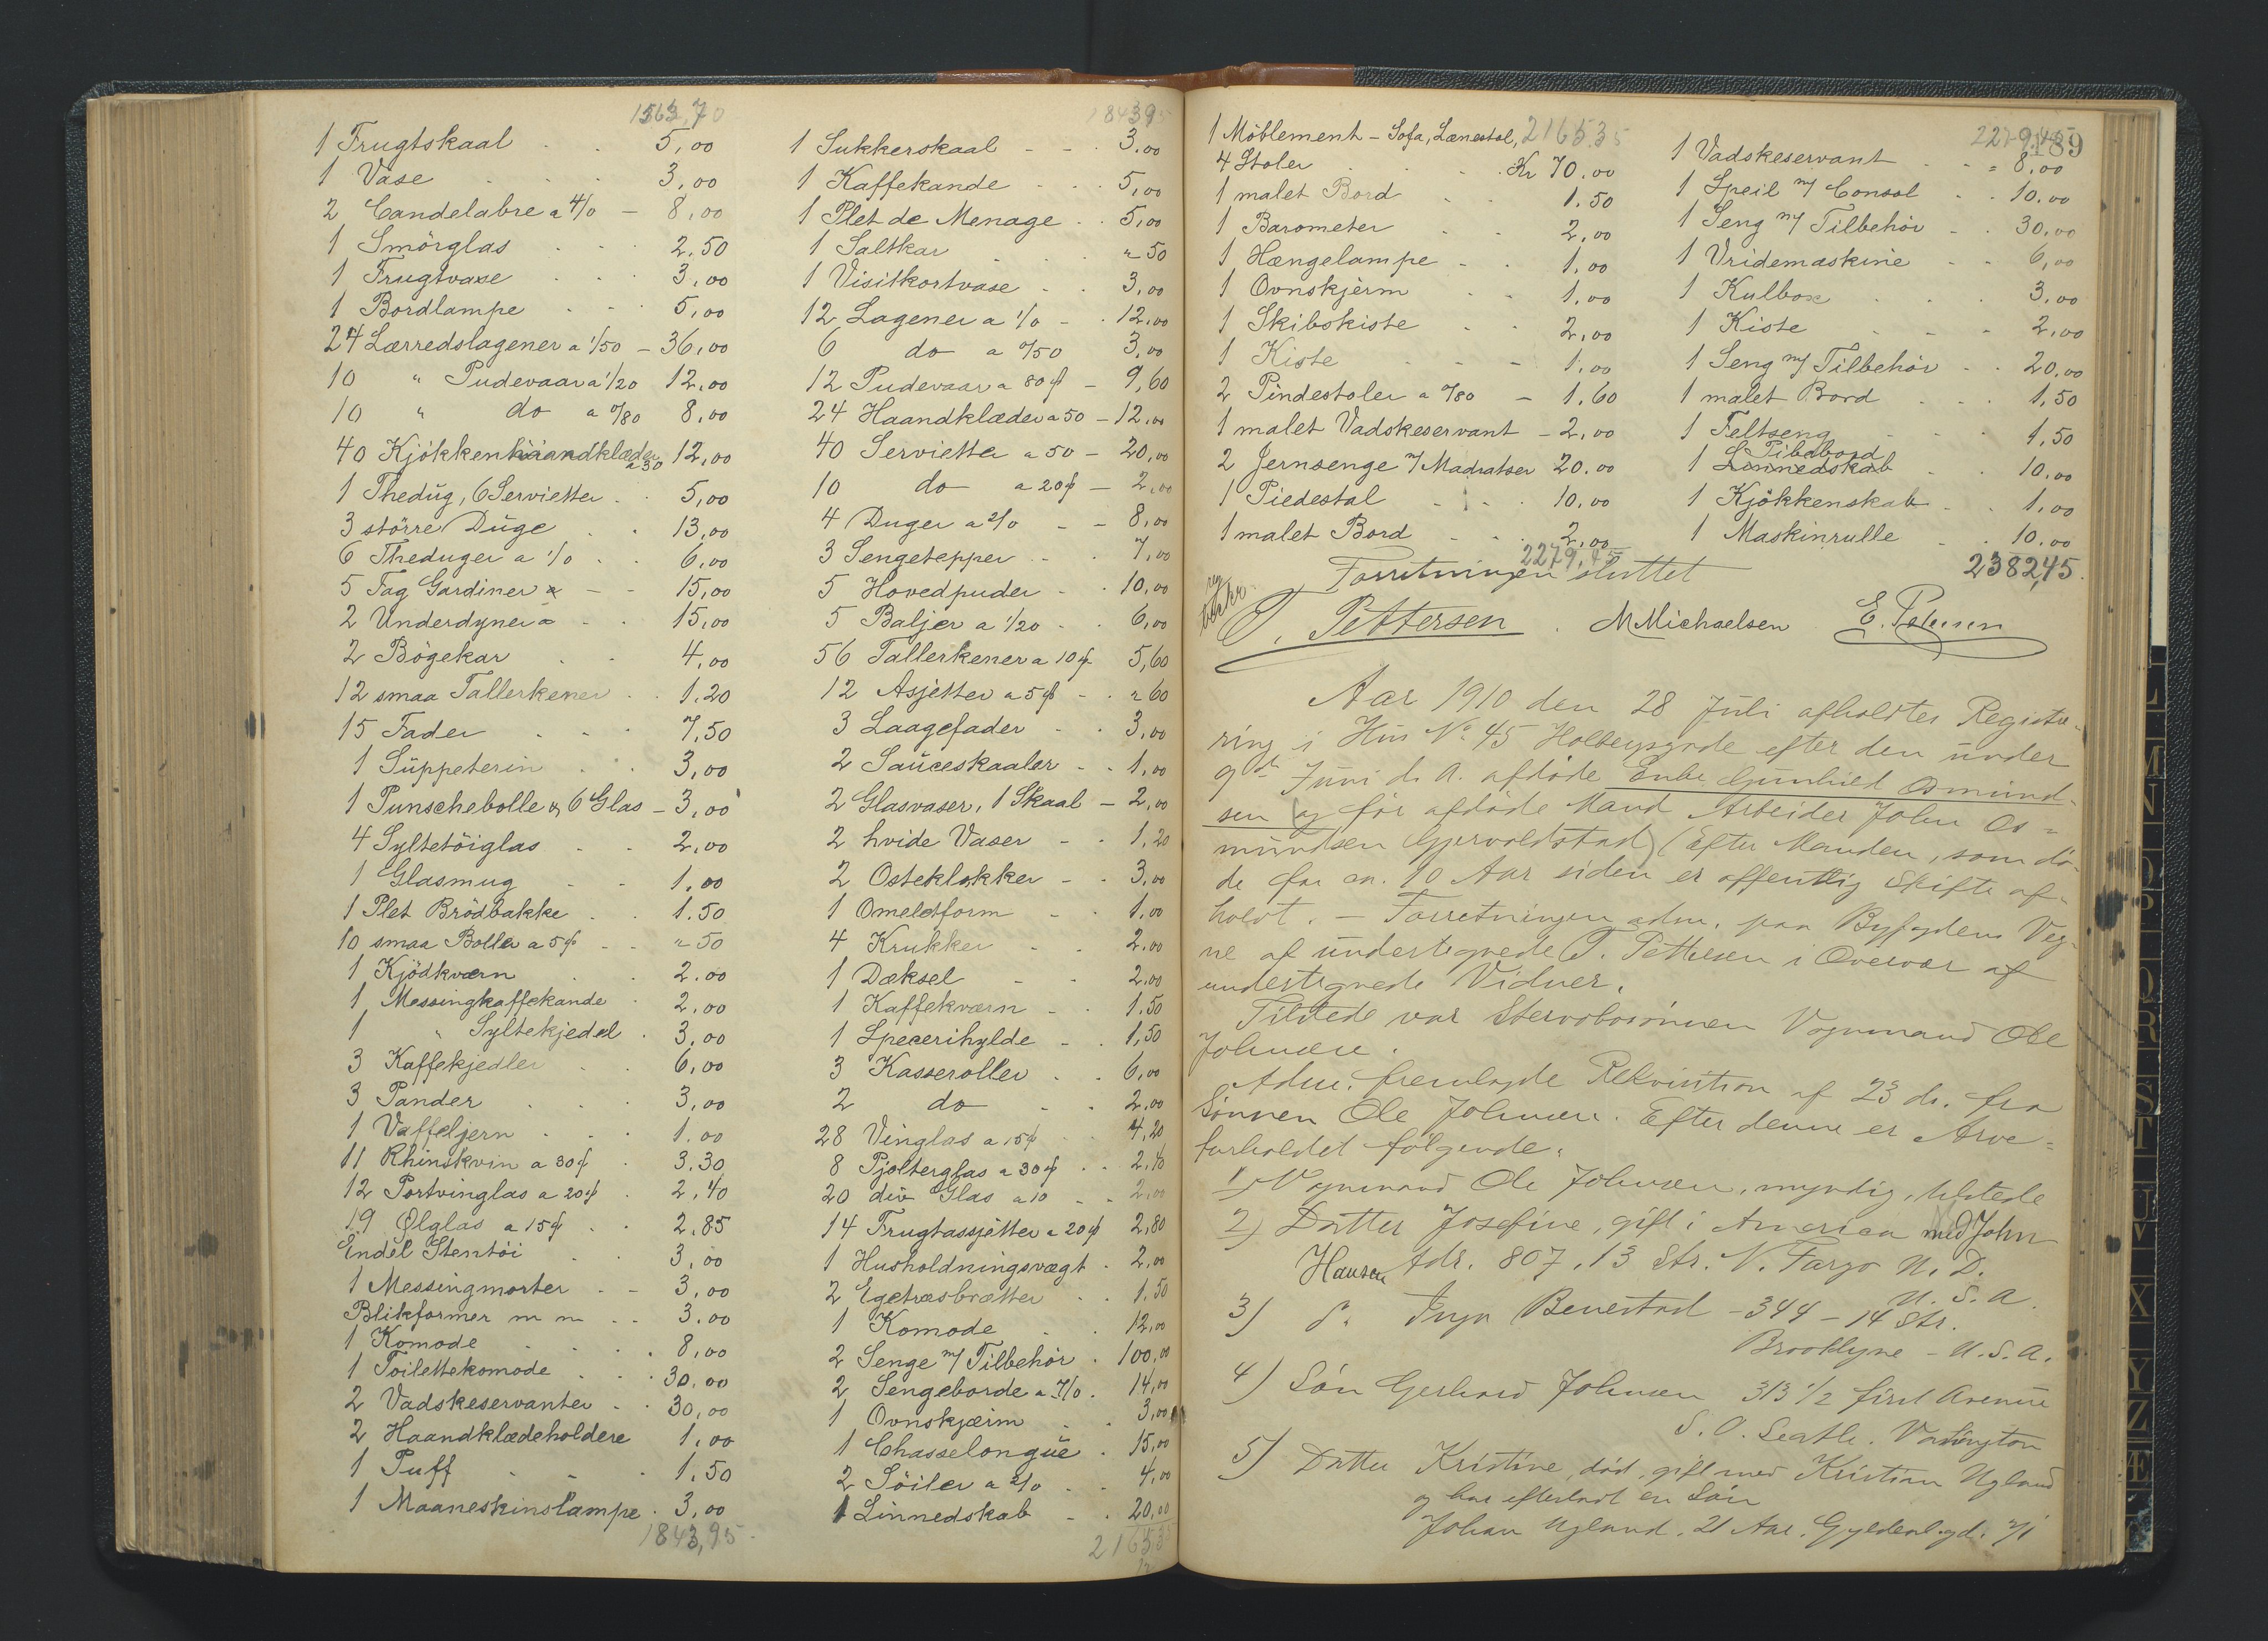 1563,70
1 Frugtskaal . . 5,00
1 Vase . . . 3,00
2 Candelabre a 4/0 — 8,00
1 Smörglas . . . 2.50
1 Frugtvase . . . 3,00
1 Bordlampe . . 5,00
24 Lærredslagener a 1/50 — 36,00
10 " Pudevaar a 1/20 12,00
10 " do a "/80 8,00
40 Kjökkenhaandklæder a 30 12,00
1 Thedug, 6 Servietter . . 5,00
3 större Duge . . 13,00
6 Theduger a 1/0 . . 6,00
5 Fag Gardiner a — - 15,00
2 Underdyner a - . 15,00
2 Bögekar . . 4,00
12 smaa Tallerkener . . 1.20
15 Fader . . . 7,50
1 Suppeterin . . 3,00
1 Punschebolle & 6 Glas — 3,00
4 Syltetöiglas . . 2,00
1 Glasmug . . 1,00
1 Plet Brödbakke . . 1.50
10 smaa Boller a 5 ø - . " 50
1 Kjödkværn . . 2.00
1 Messingkaffekande . 2,00
1 " Syltekjedel . 3,00
3 Kaffekjedler . . 6,00
3 Pander . . . 3,00
1 Vaffeljern . . . 1.00
11 Rhinskvin a 30 ø . 3.30
12 Portvinglas a 20 ø . 2,40
19 Ølglas a 15 ø . . 2.85
Endel Stentöi . 3,00
1 Messingmorter . - 3,00
Blikformer m m . . 3.00
1 Komode . . . . 8,00
1 Toilettekomode . . . 30,00
2 Vadskeservanter . . 30,00
2 Haandklædeholdere 1,00
1 Puff . . . 1,50
1 Maaneskinslampe . 3,00
1843,95
184395
1 Sukkerskaal - - . 3.00
1 Kaffekande . . . 5,00
1 Plet de Menage . . 5,00
1 Saltkar . . . " 50
1 Visitkortvase . . 3,00
12 Lagener a 1/0 - . 12,00
6 do a "/50 3,00
12 Pudevaar a 80 ø — 9,60
24 Haandklæder a 50 — 12,00
40 Servietter a 50 — 20,00
10 do a 20 ø — 2,00
4 Duger a 2/0 - - 8,00
3 Sengetepper - . 7,00
5 Hovedpuder - . 10,00
5 Baljer a 1/20 - . 6,00
56 Tallerkener a 10 ø 5,60
12 Asjetter a 5 ø - . " 60
3 Laagefader . . 3,00
2 Sauceskaaler - . 1,00
2 Glasvaser, 1 Skaal — 2,00
2 hvide Vaser - . 1,20
2 Osteklokker - . 3,00
1 Omeletform - . 1,00
4 Krukker . . 2,00
1 Dæksel - . 2,00
1 Kaffekværn - . 1.50
1 Specerihylde - . 1,50
3 Kasseroller . . 6,00
2 do . . 2,00
28 Vinglas a 15 ø . 4,20
8 Pjolterglas a 30 ø . . 2,40
20 div Glas a 10 - . 2,00
14 Frugtassjetter a 20 ø 2,80
1 Husholdningsvægt . 2,00
2 Egetræsbrætter . . 1.50
1 Komode . . 12,00
2 Senge m/ Tilbehör . 100,00
2 Sengeborde a 7/0 . 14,00
1 Ovnskjærm . . 3,00
1 Chasselongue . 15,00
2 Söiler a 2/0 . . 4,00
1 Linnedskab - . 20,00
216535
1 Möblement - Sofa, Lænestol, 216535
4 Stoler . . . . Kr 70.00
1 malet Bord . . 1.50
1 Barometer . . 2,00
1 Hængelampe - . 1,00
1 Ovnskjerm . . 1,00
1 Skibskiste . . 2,00
1 Kiste . . - 1,00
2 Pindestoler a "/80 — 1,60
1 malet Vadskeservant — 2,00
2 Jernsenge m/ Madratser 20.00
1 Piedestal . . . 10,00
1 malet Bord . . . 2,00
2279,45
2279,45
189
1 Vadskeservant . . = 8,00
1 Speil m/ Consol . . 10.00
1 Seng m/ Tilbehör - . 30,00
1 Vridemaskine - - 6,00
1 Kulbox . . . 3,00
1 Kiste . . . 2,00
1 Seng m/ Tilbehör . . 20,00
1 malet Bord . . . 1,50
1 Feltseng . . . 1,50
Pibebord
1 Linnedskab . . 10.00
1 Kjökkenskab . . 1,00
1 Maskinrulle . . 10.00
2382,45.
Forretningen sluttet
T. Pettersen . M Michaelsen E. Petersen
Aar 1910 den 28 Juli afholdtes Registre-
ring i Hus No 45 Holbergsgade efter den under
9de Juni d. A. afdöde Enke Gunhild Osmund-
sen og för afdöde Mand Arbeider John Os=
mundsen Gjervoldstad) (Efter Manden, som dö-
de for ca. 10 Aar siden er offentlig Skifte af-
holdt. — Forretningen adm. paa Byfogdens Veg-
ne af undertegnede T. Pettersen i Overvær af
undertegnede Vidner.
Tilstede var Stervbosönnen Vognmand Ole
Johnsen.
Adm. fremlagde Rekvisition af 23 ds. fra
Sönnen Ole Johnsen. Efter denne er Arve=
forholdet fölgende:
1) Vognmand Ole Johnsen, myndig, tilstede
2) Datter Josefine, gift i America med John
Hansen Adr. 807. 13 Str. N. Fargo N. D.
U. S. A.
3) do Inga Benestad - 344 - 14 Str.
Brooklyne - U. S. A.
4) Sön Gerhard Johnsen 313 1/2 first Avenue
S. O. Seatle. Vasington
5) Datter Kristine, död, gift med Kristian Ugland
og har efterladt en Sön
Johan Ugland, 21 Aar. Gyldenl. gd.